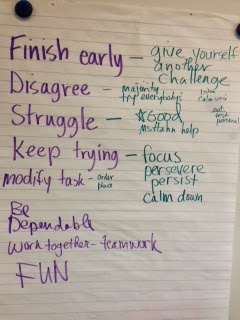 Finish early – give yourself
another
challenge
Disagree – majority
try everybody's
calm
Struggle – ☆Good
MsHahn help
not
first
personal
Keep trying – focus
persevere
persist
calm down
modify task – order
place
Be
Dependable
work together – teamwork
FUN